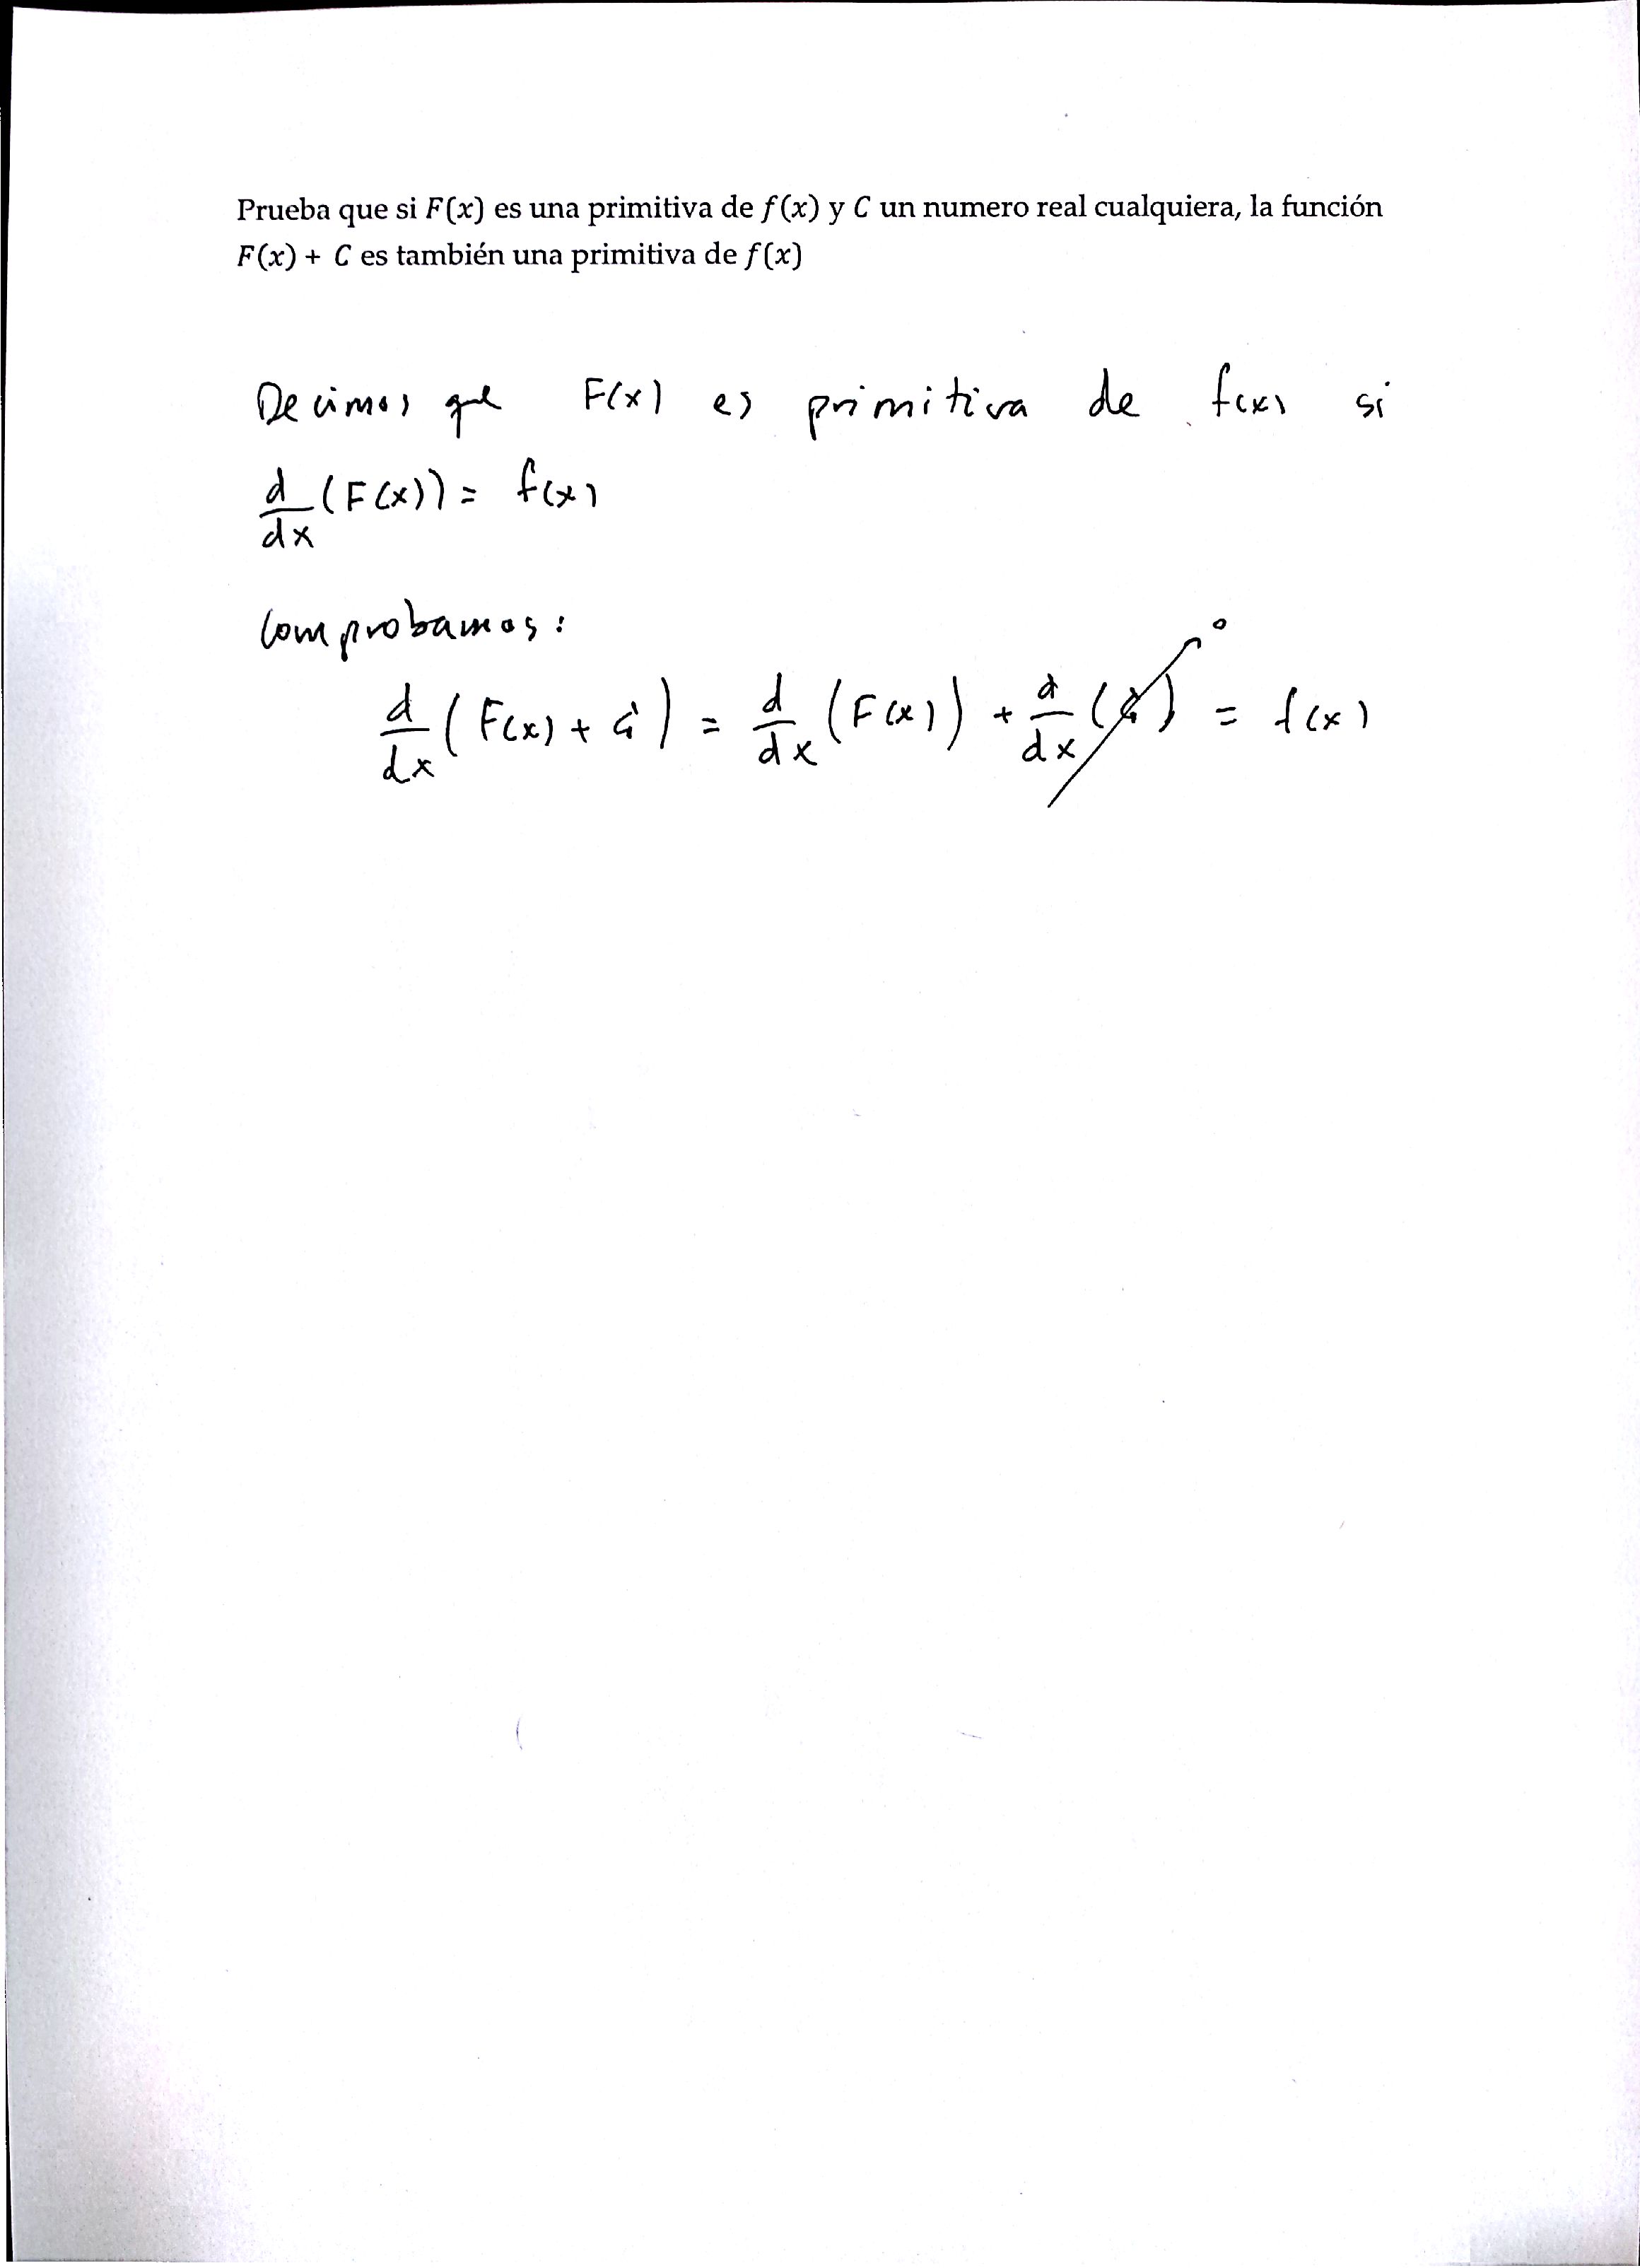 Prueba que si F(x) es una primitiva de f(x) y C un numero real cualquiera, la función
F(x) + C es también una primitiva de f(x)
Decimos que F(x) es primitiva de f(x) si
d/dx (F(x)) = f(x)
Comprobamos:
d/dx (F(x) + C) = d/dx (F(x)) + d/dx (C) = f(x)
0